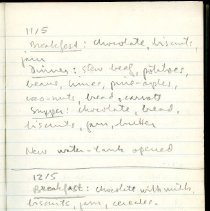 11/5
Breakfast: chocolate, biscuits,
jam
Dinner: stew beef, potatoes,
beans, limes, pine-apples,
coco-nuts, bread, carrots
Supper: chocolate, bread,
biscuits, jam, butter
New water-tank opened
12/5
Breakfast: chocolate with milk,
biscuits, jam,